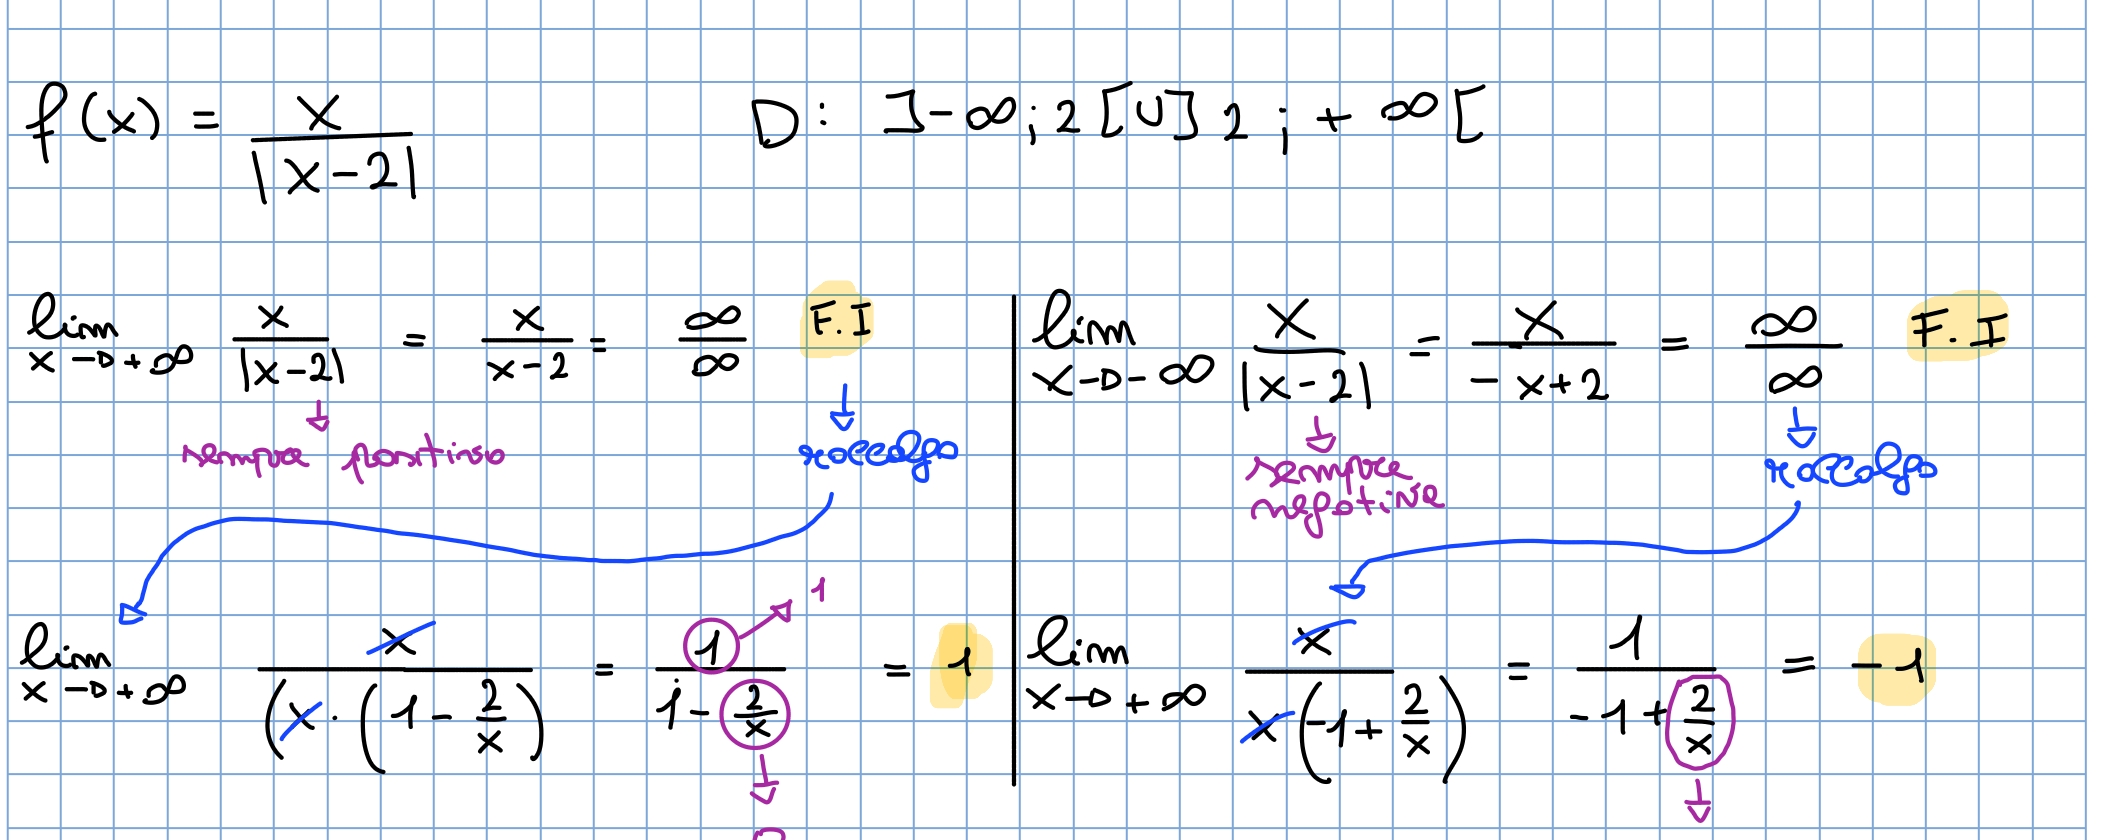 f(x) = x / |x-2|    D: ]-∞; 2[ U ]2; +∞[
lim x→+∞ x / |x-2| = x / x-2 = ∞ / ∞ F.I
sempre positivo
raccolgo
lim x→+∞ x / (x · (1 - 2/x) = 1 / 1 - 2/x = 1
1
0
lim x→-∞ x / |x-2| = x / -x+2 = ∞ / ∞ F.I
sempre
negative
raccolgo
lim x→+∞ x / x(-1 + 2/x) = 1 / -1 + 2/x = -1